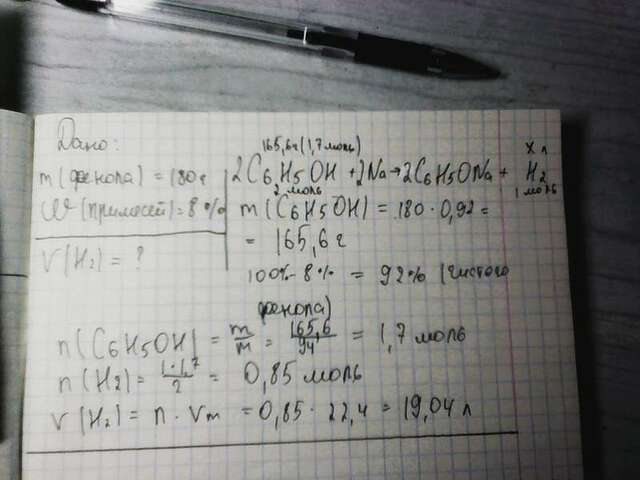 Дано:
m (фенола) = 180 г
W (примесей) = 8 %
V (H2) = ?
165,6 г (1,7 моль) x л
2C6H5OH + 2Na → 2C6H5ONa + H2
2 моль 1 моль
m (C6H5OH) = 180 · 0,92 =
= 165,6 г
100% - 8% = 92% (чистого
фенола)
n (C6H5OH) = m/M = 165,6/94 = 1,7 моль
n (H2) = 1·1,7/2 = 0,85 моль
V (H2) = n · Vm = 0,85 · 22,4 = 19,04 л